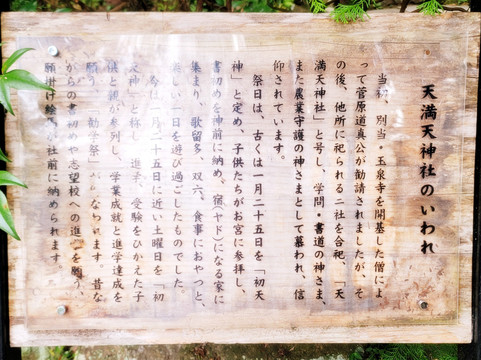 天満天神社のいわれ
当初、別当・玉泉寺を開基した僧によ
って菅原道真公が勧請されましたが、そ
の後、他所に祀られる二社を合祀、「天
満天神社」と号し、学問・書道の神さま、
また農業守護の神さまとして慕われ、信
仰されています。
祭日は、古くは一月二十五日を「初天
神」と定め、子供たちがお宮に参拝し、
書初めを神前に納め、宿(ヤド)になる家に
集まり、歌留多、双六、食事におやつと、
楽しい一日を遊び過ごしたものでした。
今は一月二十五日に近い土曜日を「初
天神」と称し、進学、受験をひかえた子
供と親が参列し、学業成就と進学達成を
願う「勧学祭」がおこなわれます。昔な
がらの書初めや志望校への進学を願う、
願掛け絵馬が社前に納められます。